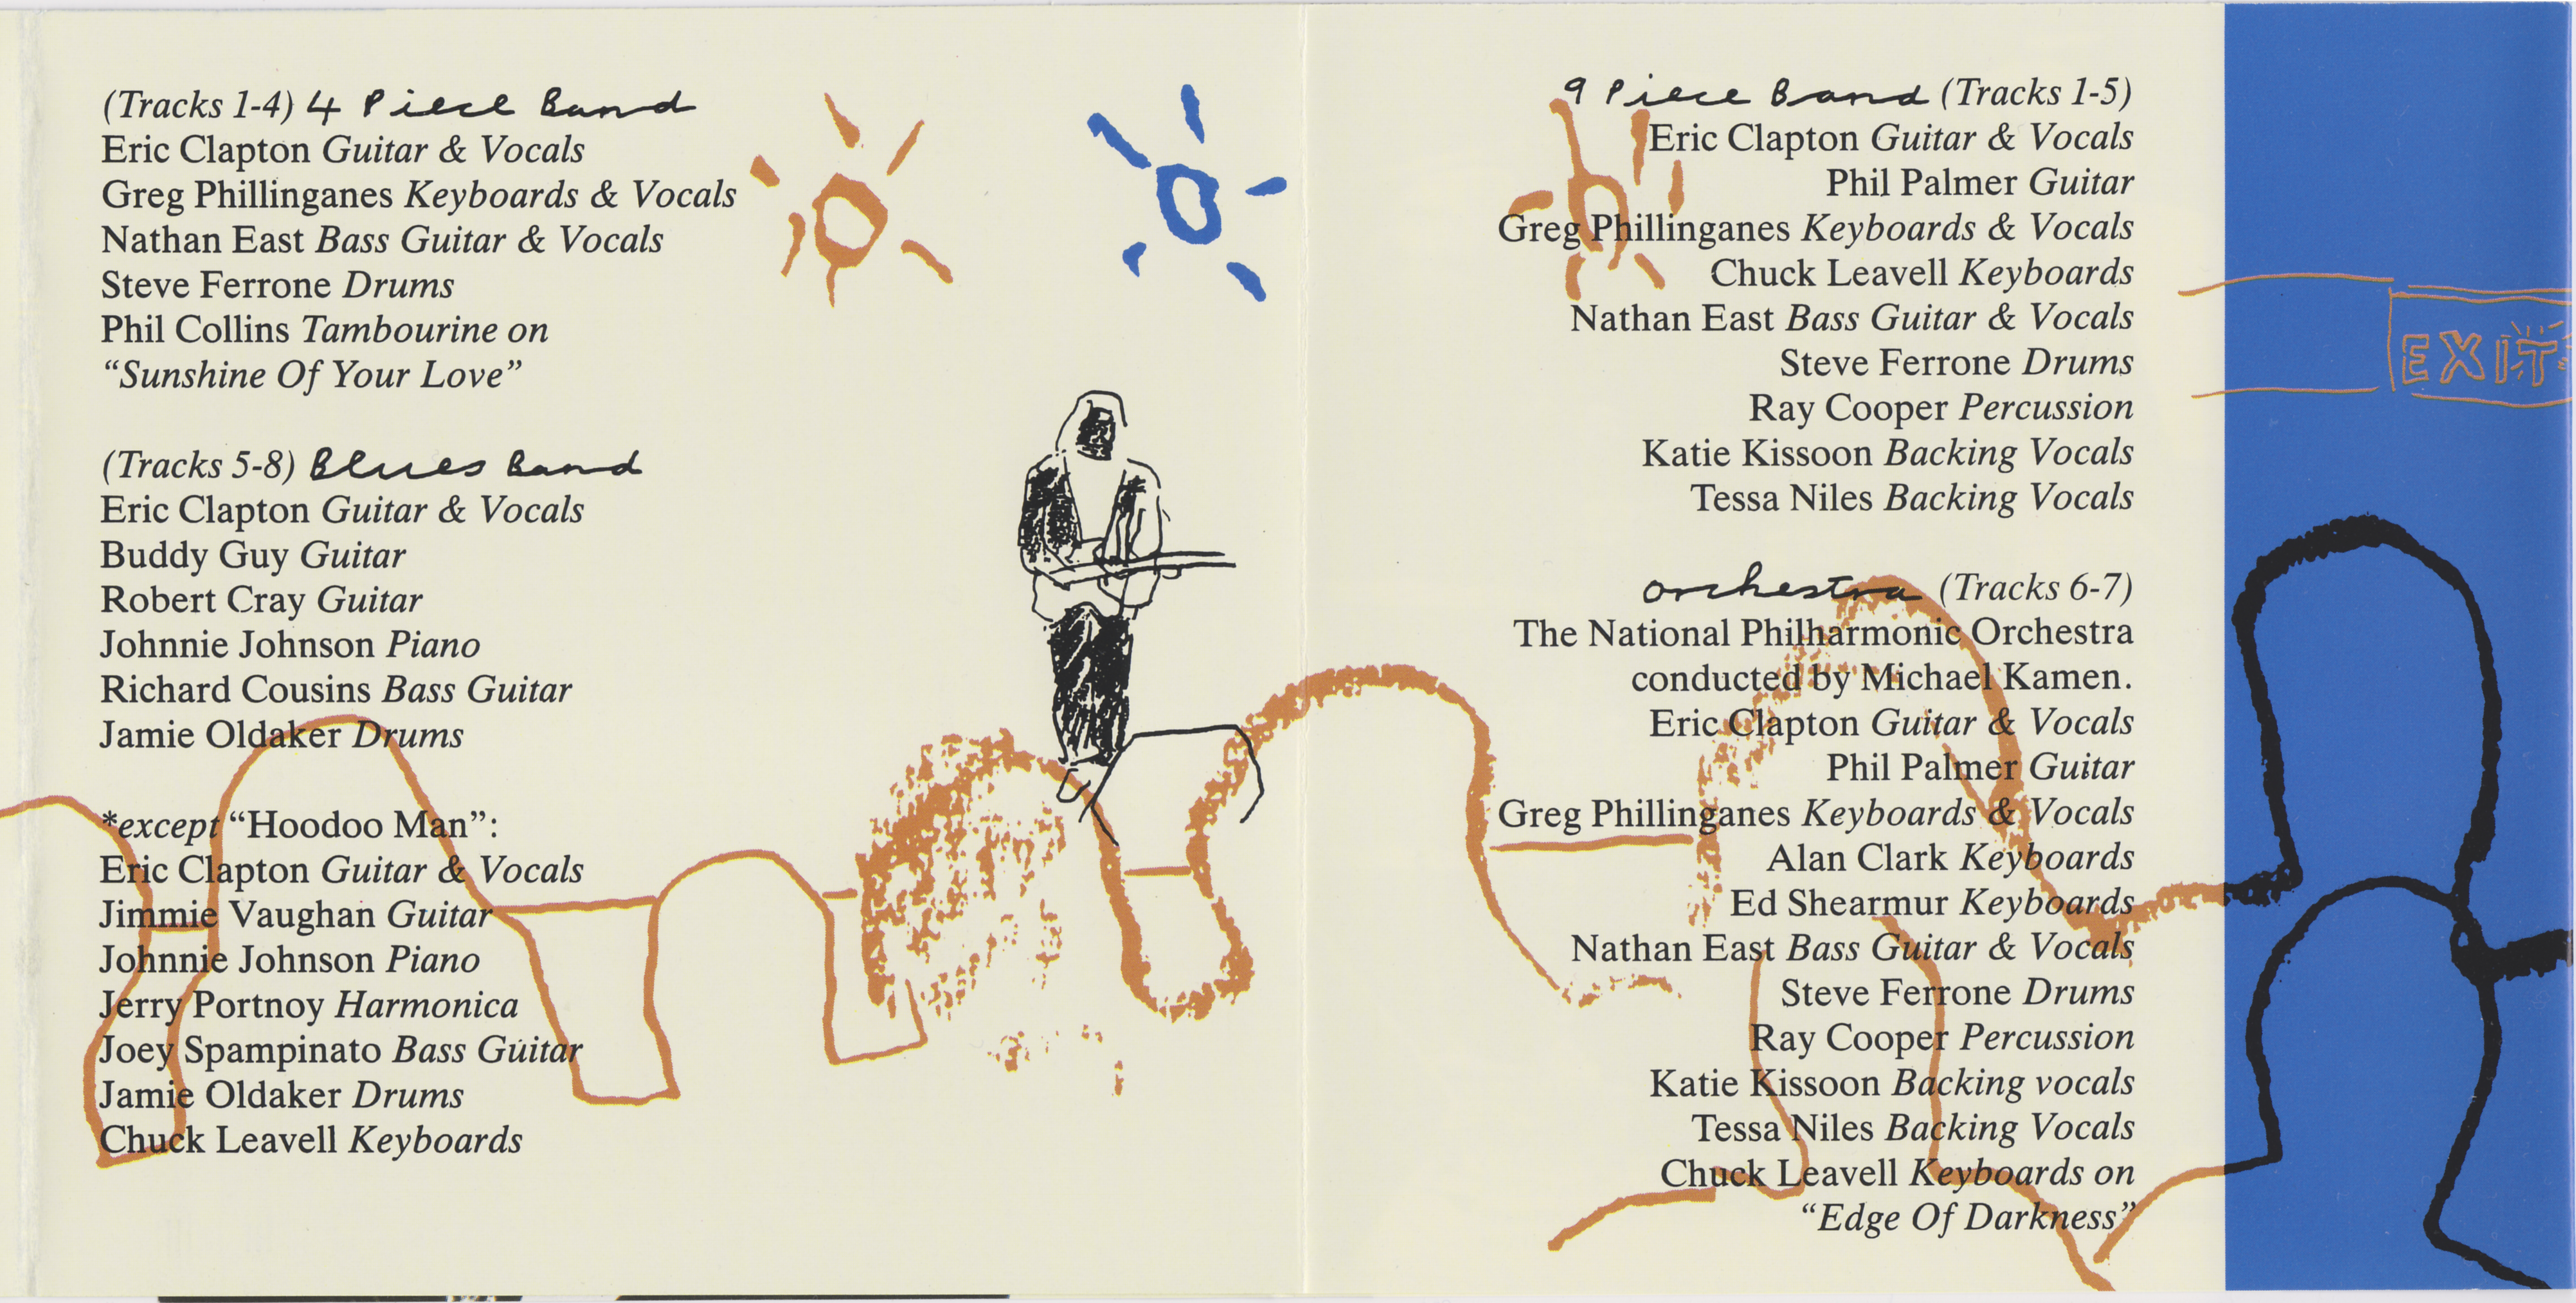 (Tracks 1-4) 4 Piece Band
Eric Clapton Guitar & Vocals
Greg Phillinganes Keyboards & Vocals
Nathan East Bass Guitar & Vocals
Steve Ferrone Drums
Phil Collins Tambourine on
“Sunshine Of Your Love”
(Tracks 5-8) Blues Band
Eric Clapton Guitar & Vocals
Buddy Guy Guitar
Robert Cray Guitar
Johnnie Johnson Piano
Richard Cousins Bass Guitar
Jamie Oldaker Drums
*except “Hoodoo Man”:
Eric Clapton Guitar & Vocals
Jimmie Vaughan Guitar
Johnnie Johnson Piano
Jerry Portnoy Harmonica
Joey Spampinato Bass Guitar
Jamie Oldaker Drums
Chuck Leavell Keyboards
9 Piece Band (Tracks 1-5)
Eric Clapton Guitar & Vocals
Phil Palmer Guitar
Greg Phillinganes Keyboards & Vocals
Chuck Leavell Keyboards
Nathan East Bass Guitar & Vocals
Steve Ferrone Drums
Ray Cooper Percussion
Katie Kissoon Backing Vocals
Tessa Niles Backing Vocals
orchestra (Tracks 6-7)
The National Philharmonic Orchestra
conducted by Michael Kamen.
Eric Clapton Guitar & Vocals
Phil Palmer Guitar
Greg Phillinganes Keyboards & Vocals
Alan Clark Keyboards
Ed Shearmur Keyboards
Nathan East Bass Guitar & Vocals
Steve Ferrone Drums
Ray Cooper Percussion
Katie Kissoon Backing vocals
Tessa Niles Backing Vocals
Chuck Leavell Keyboards on
“Edge Of Darkness”
EXIT